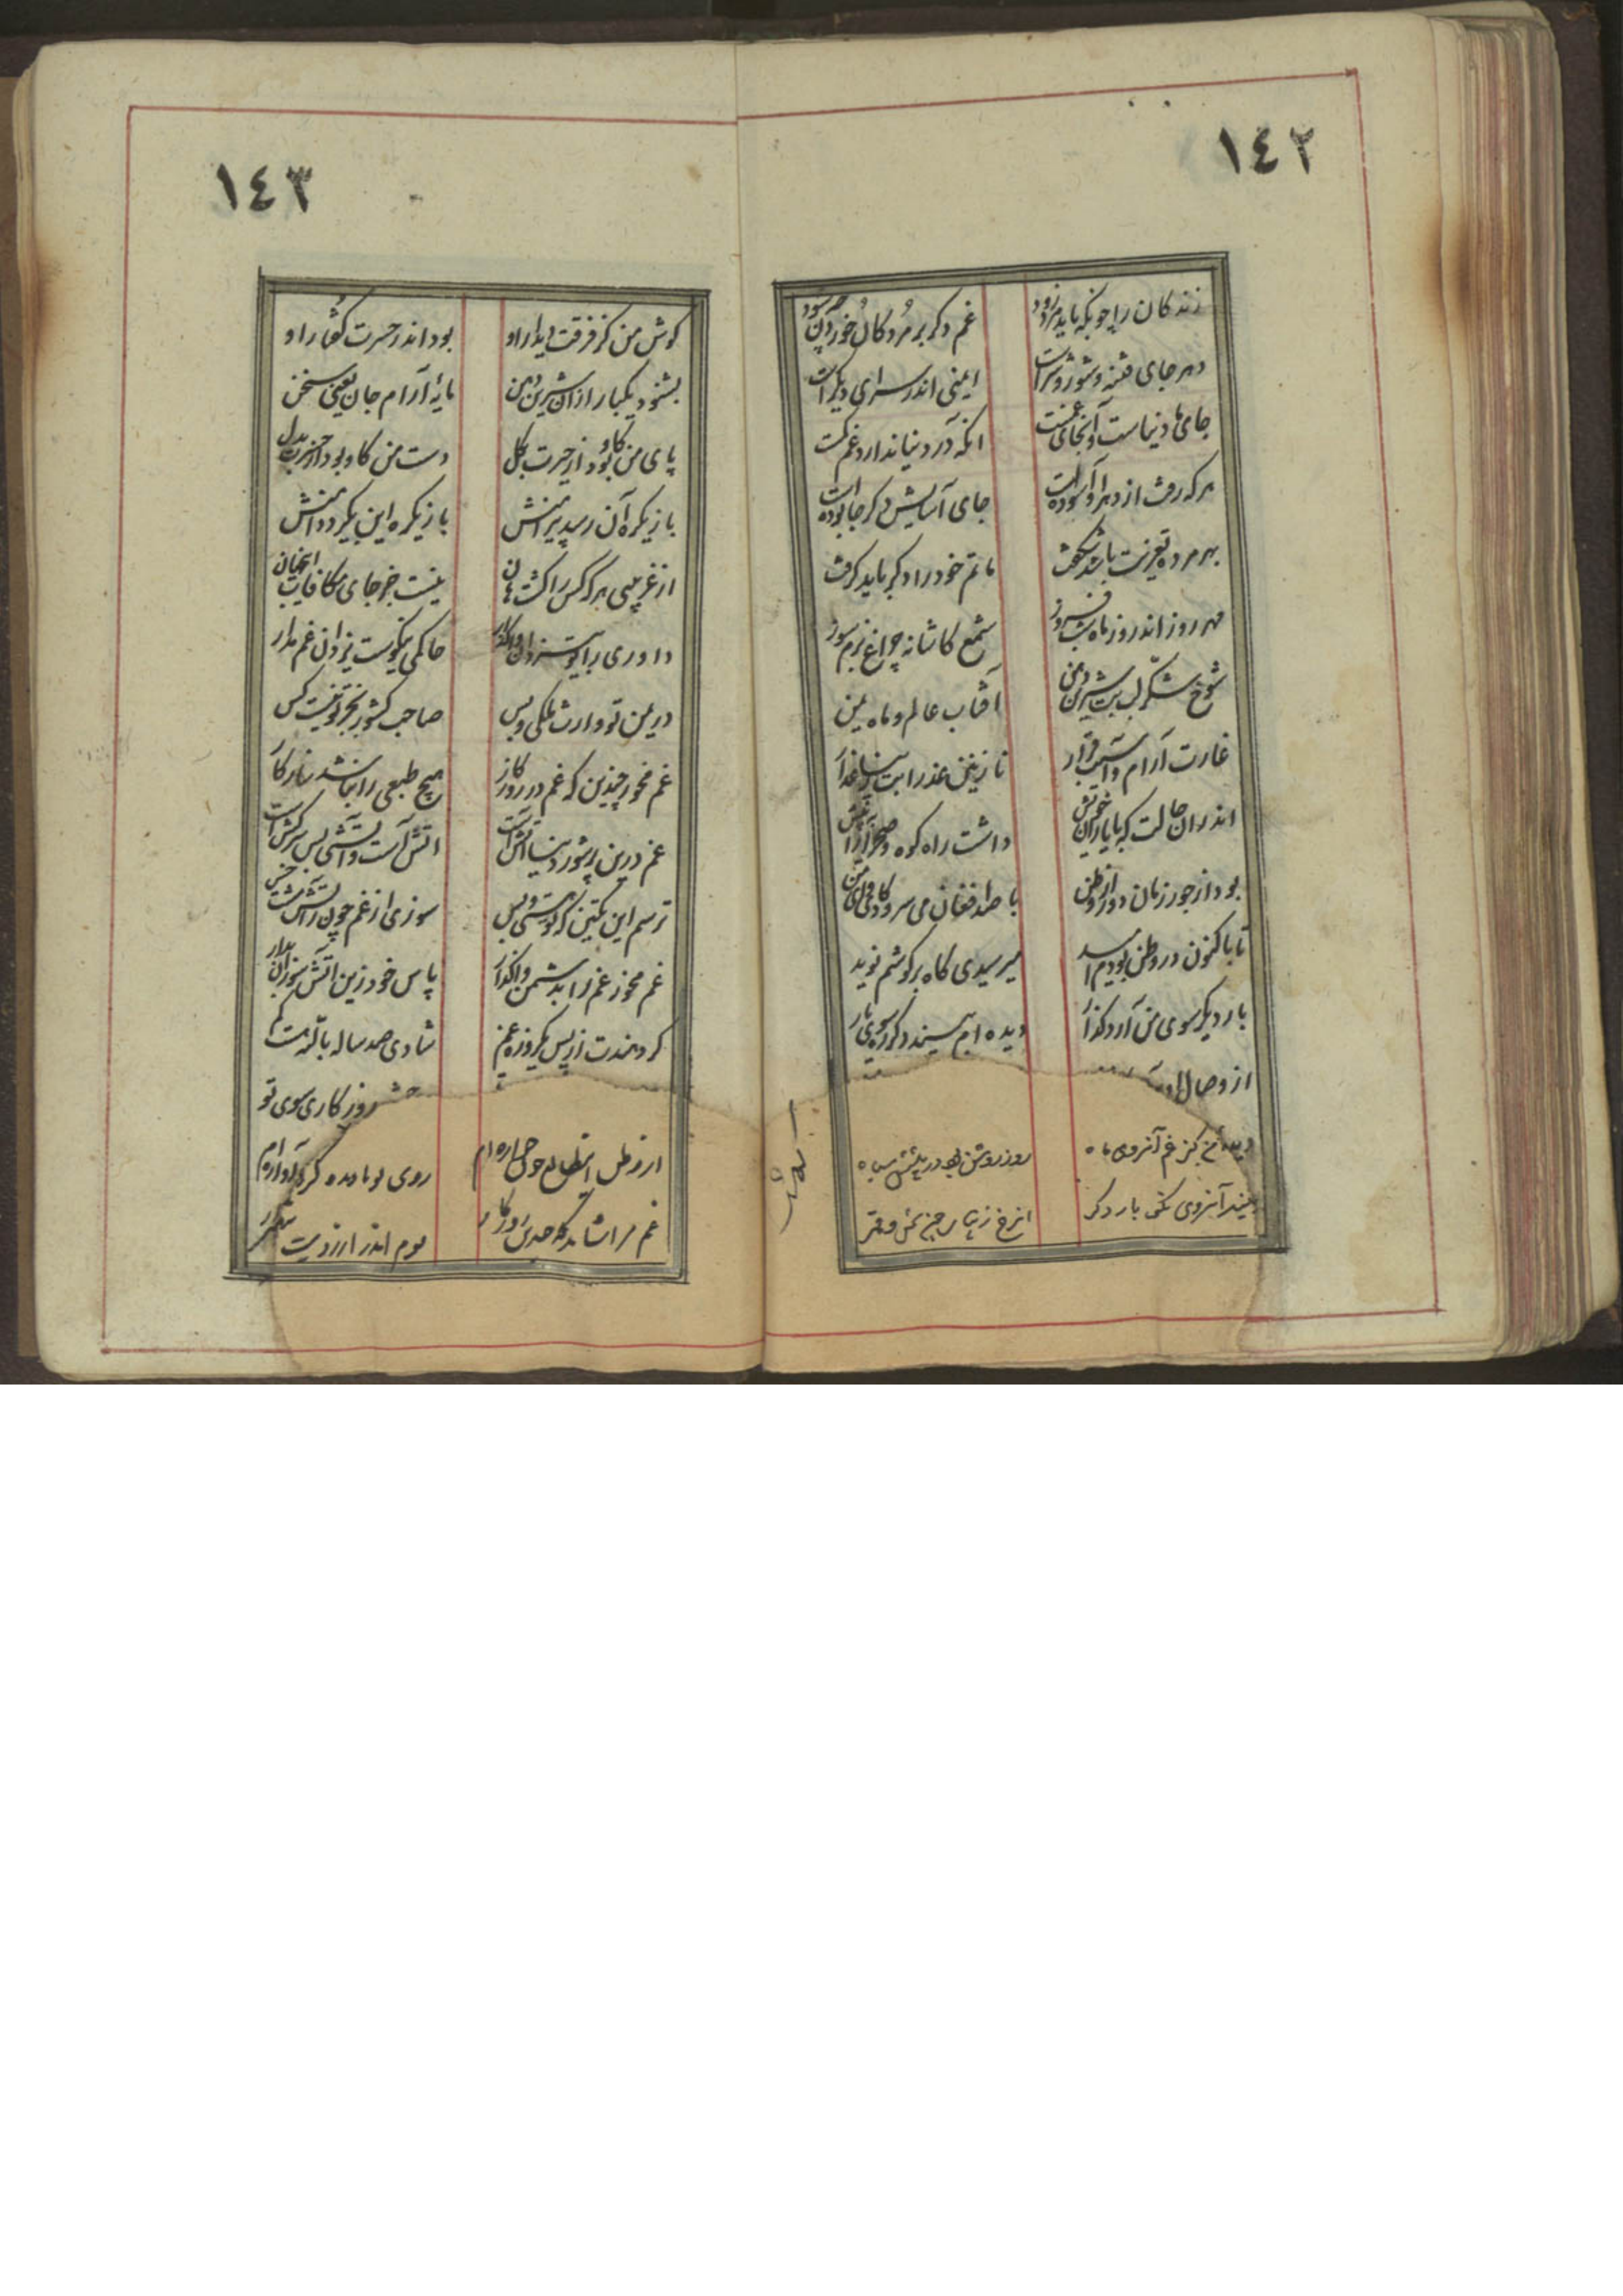 ١٤٢
زندکان را چونکه باید مرد زود غم دکر بر مردکان خوردن چه سود
دهر جای فتنه و شور و شراست ایمنی اندر سرای دیکر است
جای ما دنیاست و آنجای غمست انکه در دنیا ندارد غم کمست
هرکه رفت از دهر او آسوده است جای آسایش دکر جا بوده است
بهر مرده تعزیت باشد شکفت ماتم خود را دکر باید کرفت
مهر روز اندر روز ماه شب فروز شمع کاشانه چراغ بزم سوز
شوخ شکر لب بت شیرین دهن آفتاب عالم و ماه
غارت آرام و آسیب قرار نازنین عذرا بت
اندران حالت که با یاران خویش داشت راه کوه و صحرا را
بود از جور زمان دور از وطن با صد افغان می سرود کای وای من
تا باکنون در وطن بودم امید میرسیدی کاه بر کوشم نوید
بار دیکر سوی من آرد کذار دیده ام بیند دکر روی یار
از وصال او
دیده من کز غم آنروی ماه روز روشن بود در پیشش سیاه
بیند آنروی نکو بار دکر از رخ زیبا
١٤٣
کوش من کز فرقت دیدار او بود اندر حسرت کفتار او
بشنود یکبار از آن شیرین دهن مایه آرام جان یعنی سخن
پای من کاو بود از حسرت بکل دست من کاو بود از حسرت بدل
باز یکره آن رسد پیرامنش باز یکره این بکیرد دامنش
از غریبی هرکه کس را کشت هان نیست جز جای مکافات اینجهان
داوری را با یزدان واکذار حاکمی نیکوست یزدان غم مدار
در یمن تو وارث ملکی و بس صاحب کشور بجز تو نیست کس
غم مخور چندین که غم در روزکار هیچ طبعی را نباشد سازکار
غم درین پرشور دنیا آتش است آتش است و آتشی بس سرکش است
ترسم این یکتن که تو هستی و بس سوزی از غم چون ز آتش مشت خس
غم مخور غم را بدشمن واکذار پاس خود زین آتش سوزان بدار
کردهندت از پس یکروزه غم شادی صد ساله بالله هست کم
روزکاری سوی تو
از وطن روی تو نادیده کرد آواره ام
غم مرا شاید که صد روزکار بودم اندر آرزویت